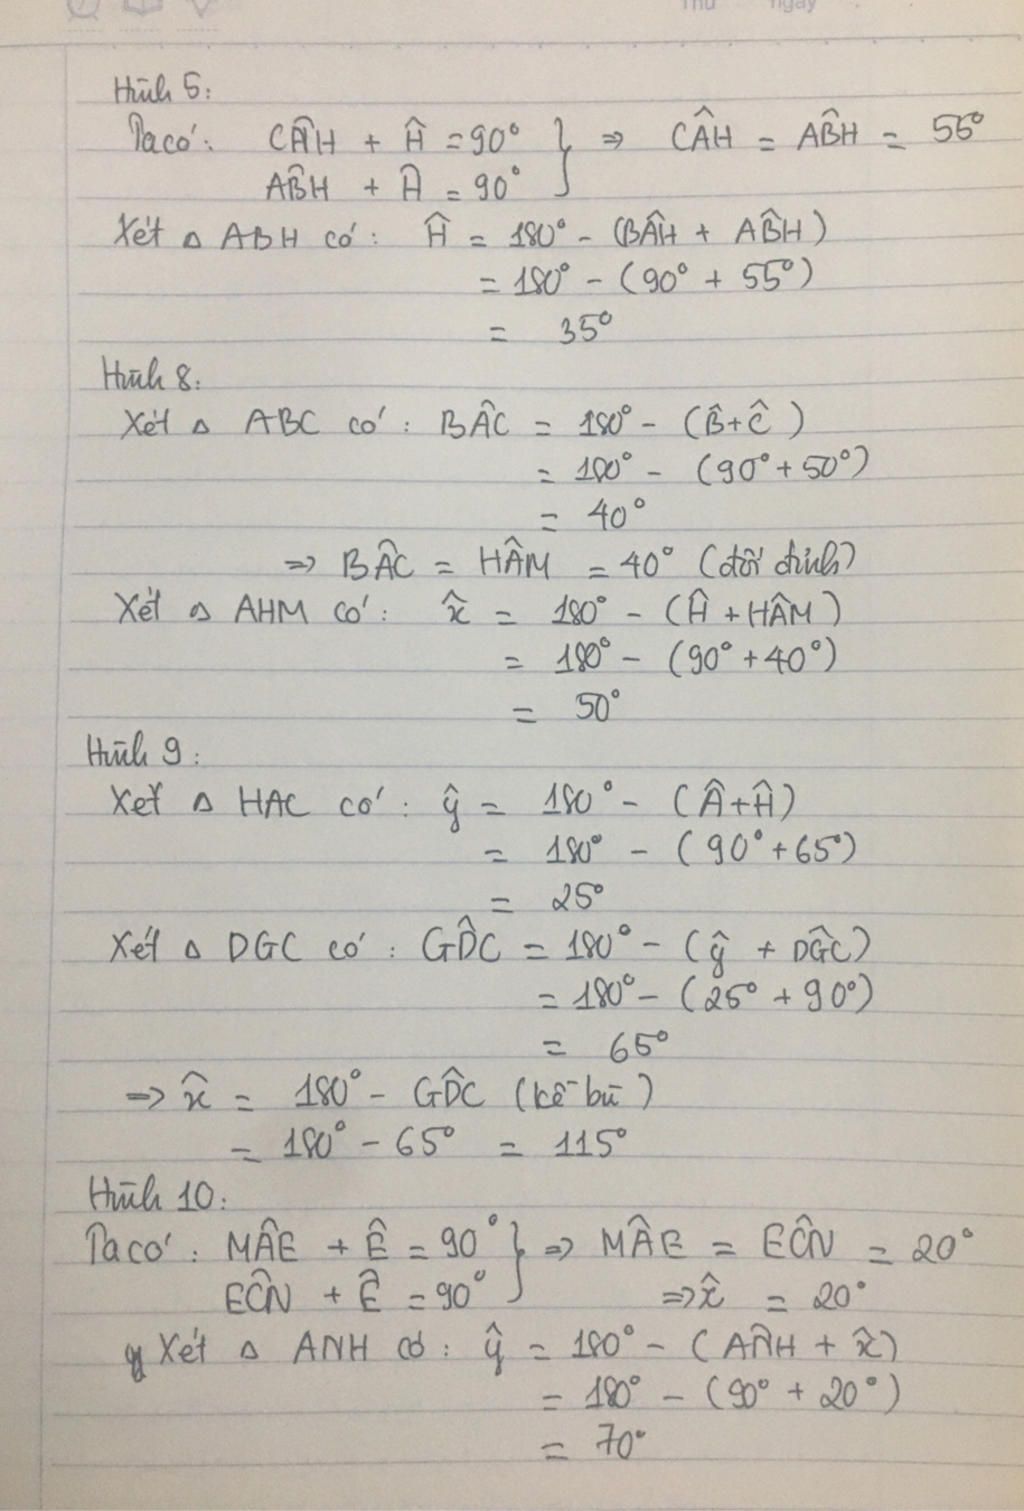 Thứ ngày
Hình 5:
Ta có: CÂH + Ĥ = 90° } ⇒ CÂH = AB̂H = 55°
AB̂H + Ĥ = 90°
Xét △ ABH có: Ĥ = 180° - (BÂH + AB̂H)
= 180° - (90° + 55°)
= 35°
Hình 8:
Xét △ ABC có: BÂC = 180° - (B̂+Ĉ)
= 180° - (90°+50°)
= 40°
⇒ BÂC = HÂM = 40° (đối đỉnh)
Xét △ AHM có: x̂ = 180° - (Ĥ + HÂM)
= 180° - (90° + 40°)
= 50°
Hình 9:
Xét △ HAC có: ŷ = 180° - (Â+Ĥ)
= 180° - (90°+65°)
= 25°
Xét △ DGC có: GD̂C = 180° - (ŷ + DĜC)
= 180° - (25° + 90°)
= 65°
⇒ x̂ = 180° - GD̂C (kề bù)
= 180° - 65° = 115°
Hình 10:
Ta có: MÂE + Ê = 90° } ⇒ MÂE = EĈN = 20°
EĈN + Ê = 90° ⇒ x̂ = 20°
Xét △ ANH có: ŷ = 180° - (AN̂H + x̂)
= 180° - (90° + 20°)
= 70°